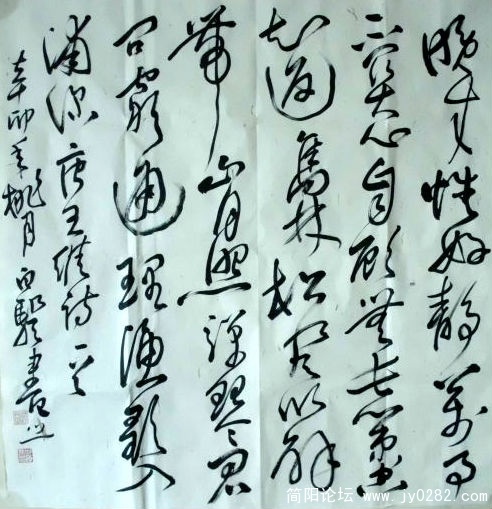 晚年惟好静萬事
不关心自顾無长策空
知返舊林松風吹解
带山月照弹琴君
问窮通理漁歌入
浦深 唐王维诗一首
辛卯年桃月
简阳论坛 www.jy0282.com